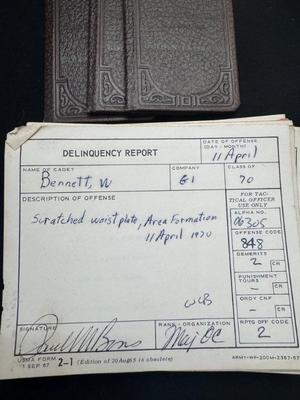 DELINQUENCY REPORT
DATE OF OFFENSE
(DAY - MONTH)
11 April
NAME OF CADET
Bennett, W
COMPANY
G1
CLASS OF
70
DESCRIPTION OF OFFENSE
FOR TAC-
TICAL OFFICER
USE ONLY
Scratched waist plate, Area Formation
11 April 1970
ALPHA NO.
06305
OFFENSE CODE
848
DEMERITS
2 CR
PUNISHMENT
TOURS
- CR
ORDY CNF
- CR
WCB
SIGNATURE
RANK - ORGANIZATION
RPTG OFF
2
USMA FORM 2-1 (Edition of 20 Aug 65 is obsolete)
1 SEP 67
ARMY-WP-200M-2367-67